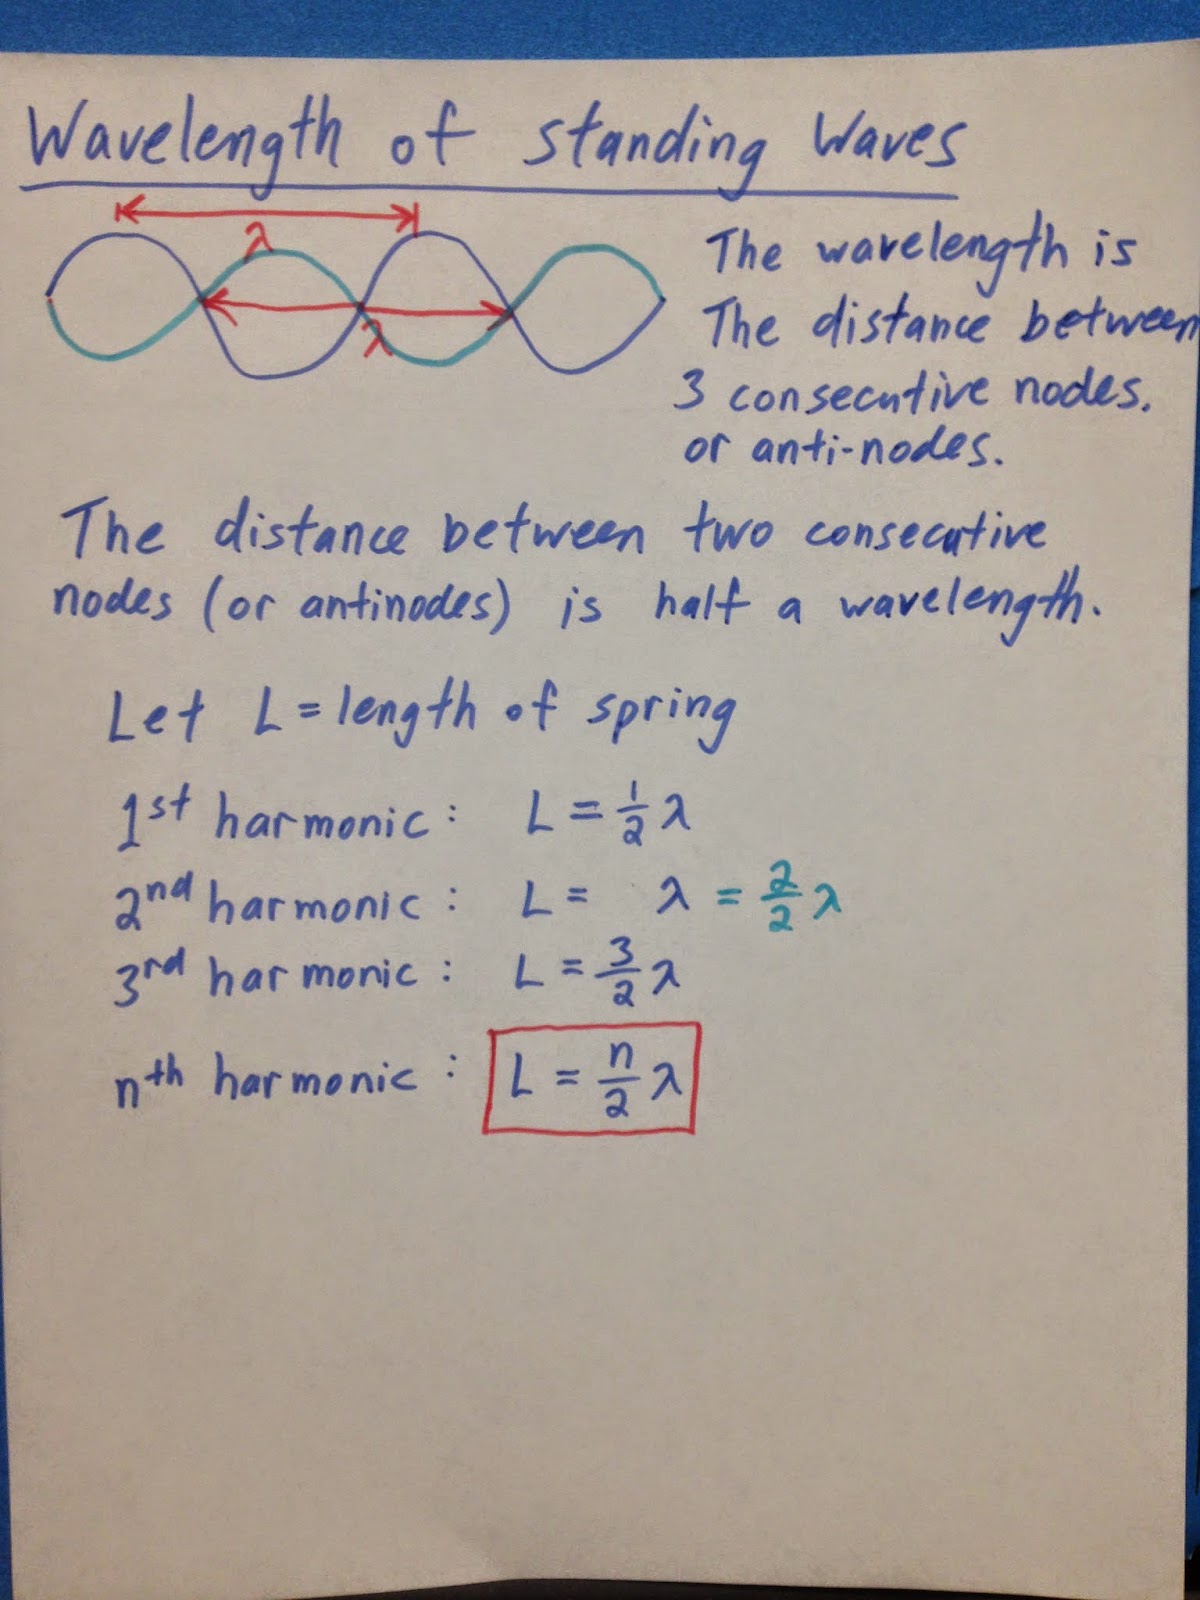 Wavelength of Standing Waves
λ
λ
The wavelength is
The distance between
3 consecutive nodes.
or anti-nodes.
The distance between two consecutive
nodes (or antinodes) is half a wavelength.
Let L = length of spring
1st harmonic : L = 1/2 λ
2nd harmonic : L = λ = 2/2 λ
3rd harmonic : L = 3/2 λ
nth harmonic : L = n/2 λ